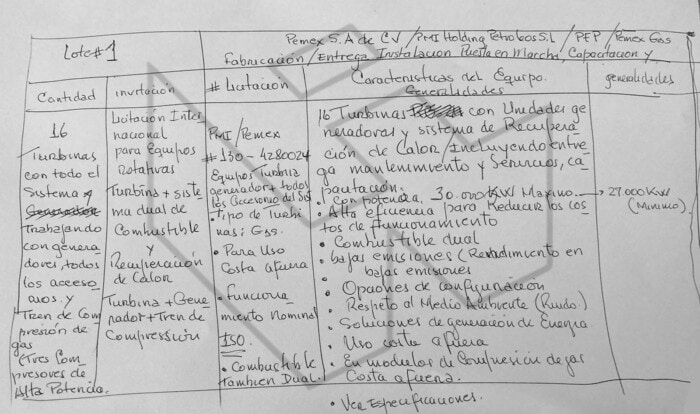 Lote#1
Pemex S.A de CV / PMI Holding Petroleos S.L / PEP / Pemex Gas
Fabricación / Entrega, Instalacion Puesta en Marcha, Capacitacion y
Cantidad
invitación
# Licitacion
Caracteristicas del Equipo.
Generalidades
generalidades
16
Turbinas
con todo el
Sistema y
Trabajando
con genera
dores, todos
los acceso
rios. y
Tren de Com
presión de
gas
(Tres Com
presores de
Alta Potencia.
Licitación Inter
nacional
para Equipos
Rotativas
Turbina + siste
ma dual de
Combustible
y
Recuperación
de Calor
Turbina + Gene
rador + Tren de
Compressión
PMI / Pemex
# 130-4280024
Equipos Turbina
generador + todos
los Accesorios del Sis
• Tipo de Turbi
nas: Gas.
• Para Uso
Costa afuera
• funciona
miento Nominal
ISO.
• Combustible
Tambien Dual.
16 Turbinas con Unidades ge
neradoras y sistema de Recupera
ción de Calor / Incluyendo entre
ga mantenimiento y Servicios, ca
pacitación.
• con potencia, 30.000 KW Maximo → 27000 KW
(Minimo)
• Alta eficiencia para Reducir los cos
tos de funcionamiento
• Combustible dual
• bajas emisiones (Rendimiento en
bajas emisiones
• Opciones de configuración
• Respeto al Medio Ambiente (Ruido)
• Soluciones de generación de Energia
• Uso costa afuera
• En modulos de Compresión de gas
Costa afuera.
• Ver Especificaciones.